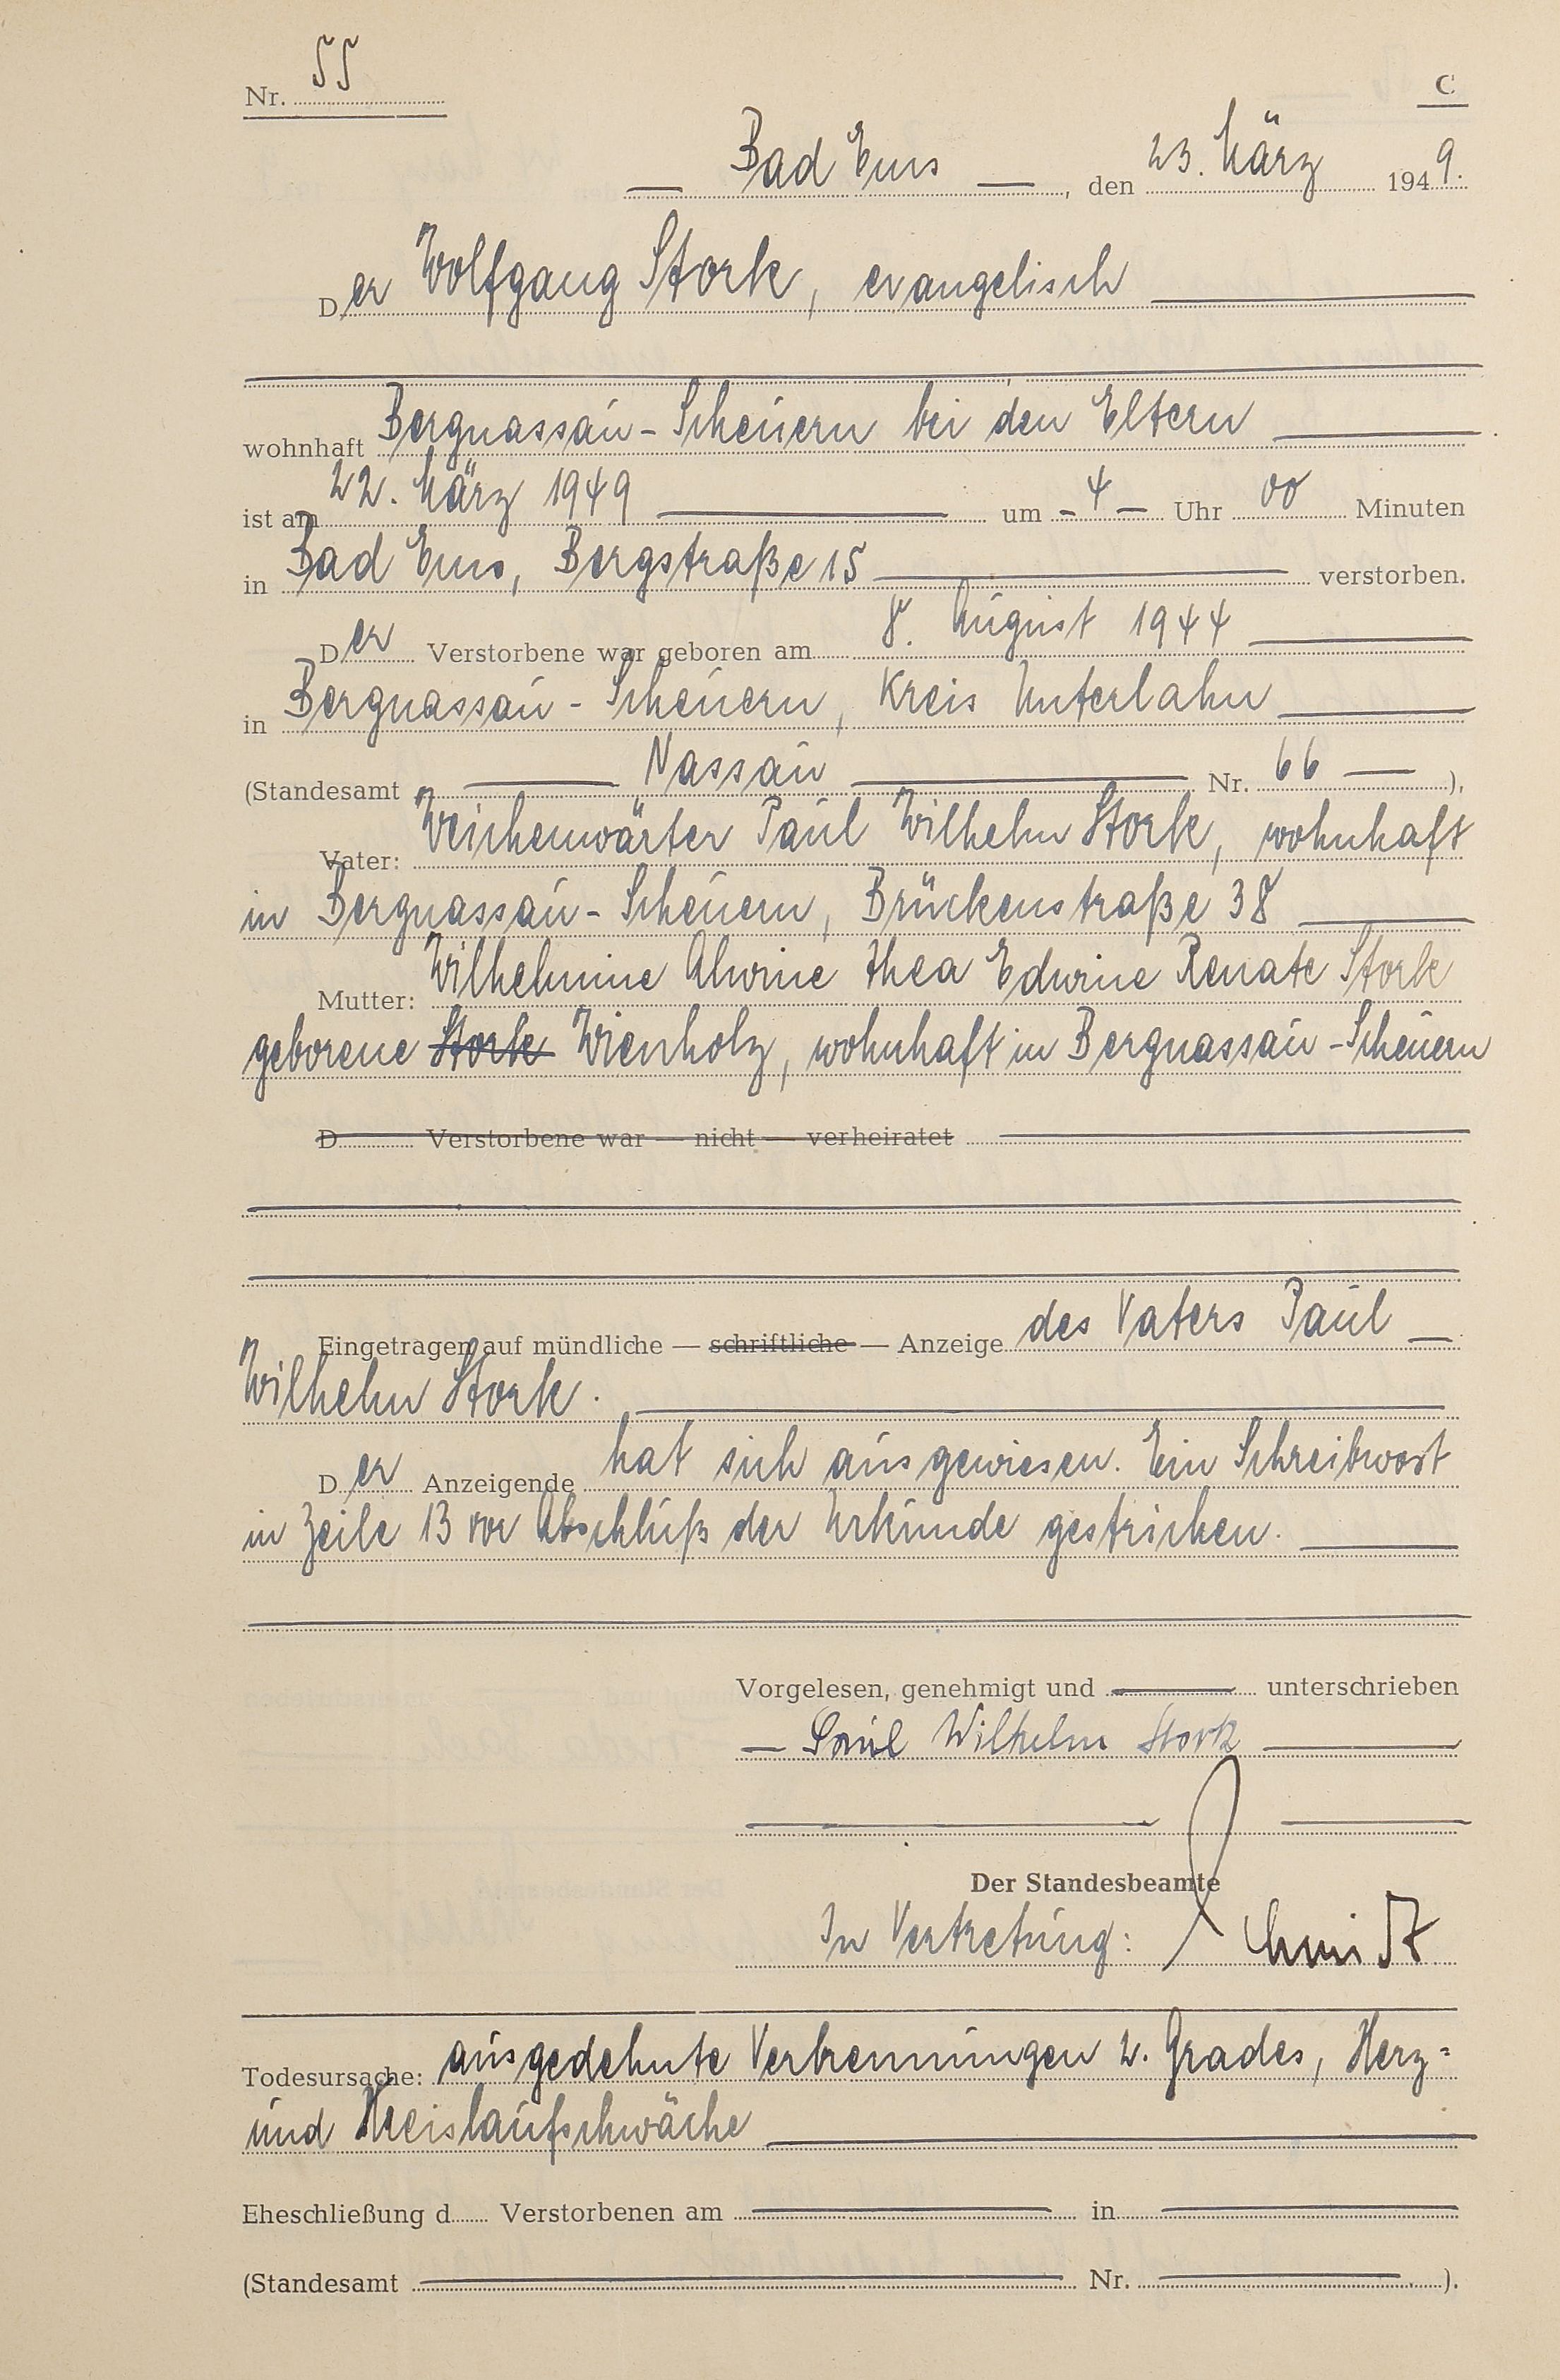 Nr. 55
C
Bad Ems, den 23. März 1949.
Der Wolfgang Stork, evangelisch
wohnhaft Bergnassau-Scheuern bei den Eltern
ist am 22. März 1949 um 4 Uhr 00 Minuten
in Bad Ems, Bergstraße 15 verstorben.
Der Verstorbene war geboren am 8. August 1944
in Bergnassau-Scheuern, Kreis Unterlahn
(Standesamt Nassau Nr. 66),
Vater: Weichenwärter Paul Wilhelm Stork, wohnhaft
in Bergnassau-Scheuern, Brückenstraße 38
Mutter: Wilhelmine Alwine Thea Edwine Renate Stork
geborene Stork Wienholz, wohnhaft in Bergnassau-Scheuern
D Verstorbene war — nicht — verheiratet
Eingetragen auf mündliche — schriftliche — Anzeige des Vaters Paul
Wilhelm Stork.
Der Anzeigende hat sich ausgewiesen. Ein Schreibwort
in Zeile 13 vor Abschluß der Urkunde gestrichen.
Vorgelesen, genehmigt und unterschrieben
Paul Wilhelm Stork
Der Standesbeamte
In Vertretung: Schmidt
Todesursache: ausgedehnte Verbrennungen 2. Grades, Herz=
und Kreislaufschwäche
Eheschließung d Verstorbenen am in
(Standesamt Nr. ).